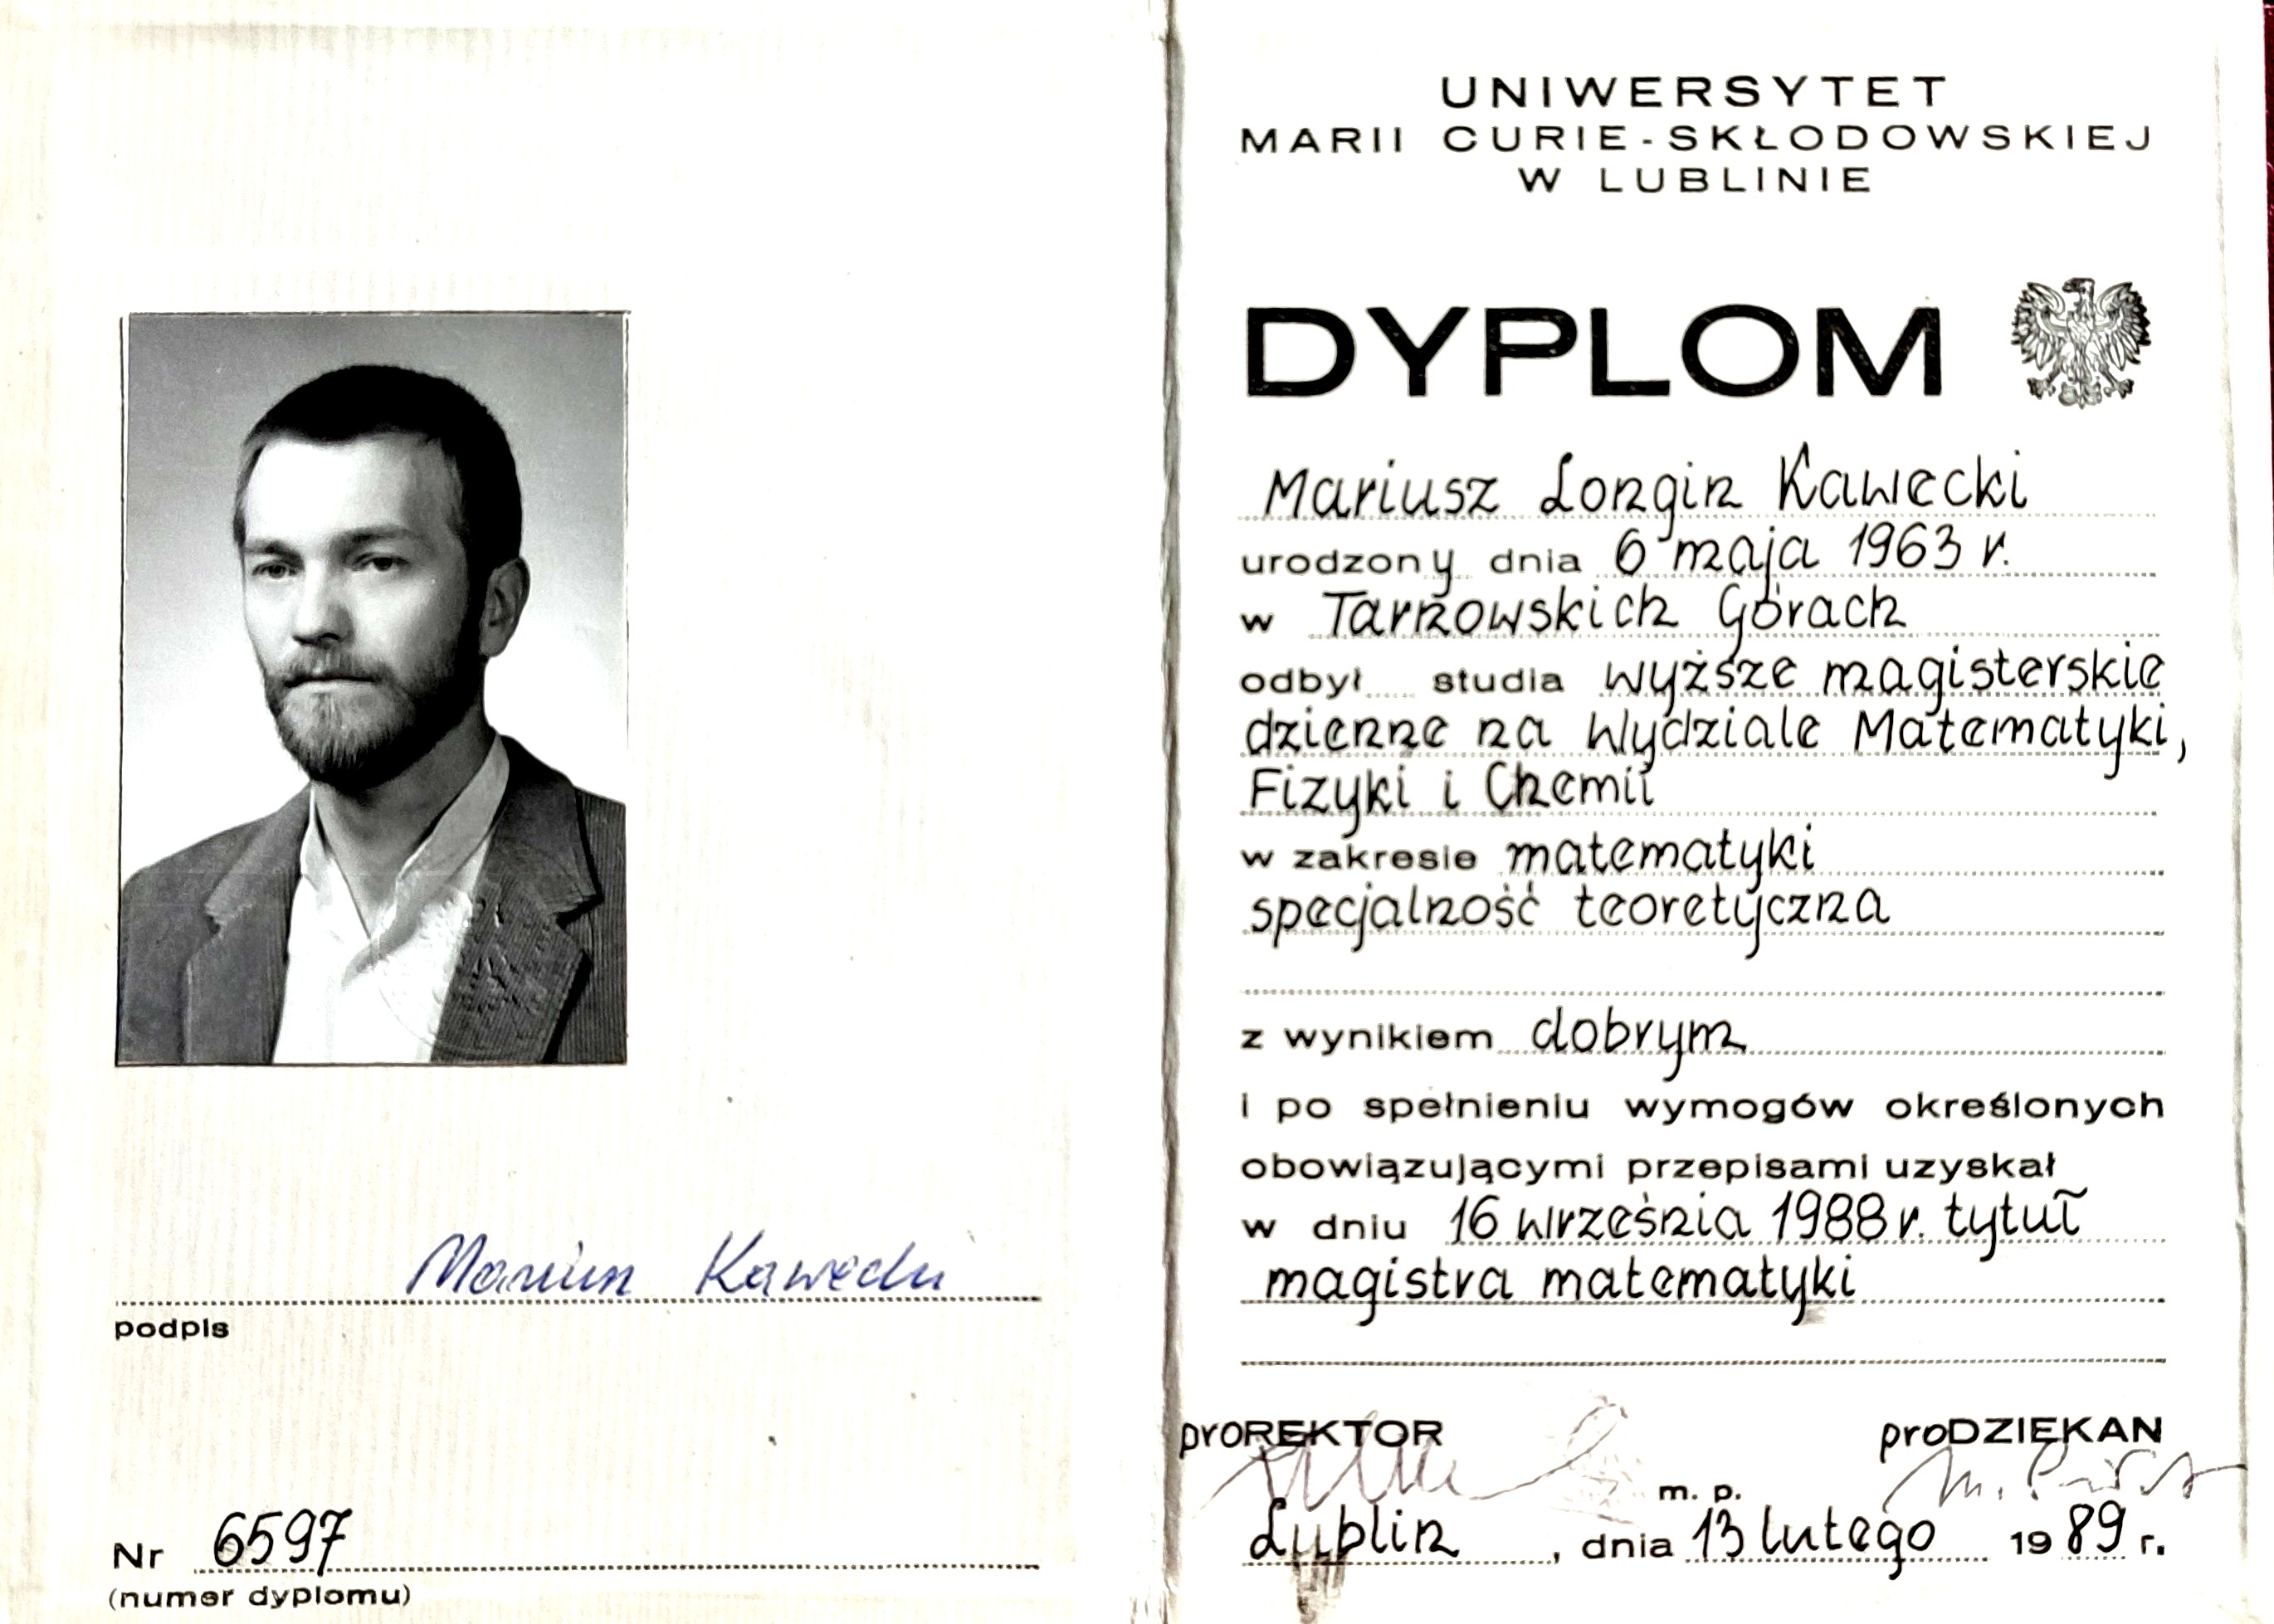 Mariusz Kawecki
podpis
Nr 6597
(numer dyplomu)
UNIWERSYTET
MARII CURIE-SKŁODOWSKIEJ
W LUBLINIE
DYPLOM
Mariusz Longin Kawecki
urodzony dnia 6 maja 1963 r.
w Tarnowskich Górach
odbył studia wyższe magisterskie
dzienne na Wydziale Matematyki,
Fizyki i Chemii
w zakresie matematyki
specjalność teoretyczna
z wynikiem dobrym
i po spełnieniu wymogów określonych
obowiązującymi przepisami uzyskał
w dniu 16 września 1988 r. tytuł
magistra matematyki
proREKTOR proDZIEKAN
m. p.
Lublin, dnia 13 lutego 1989 r.